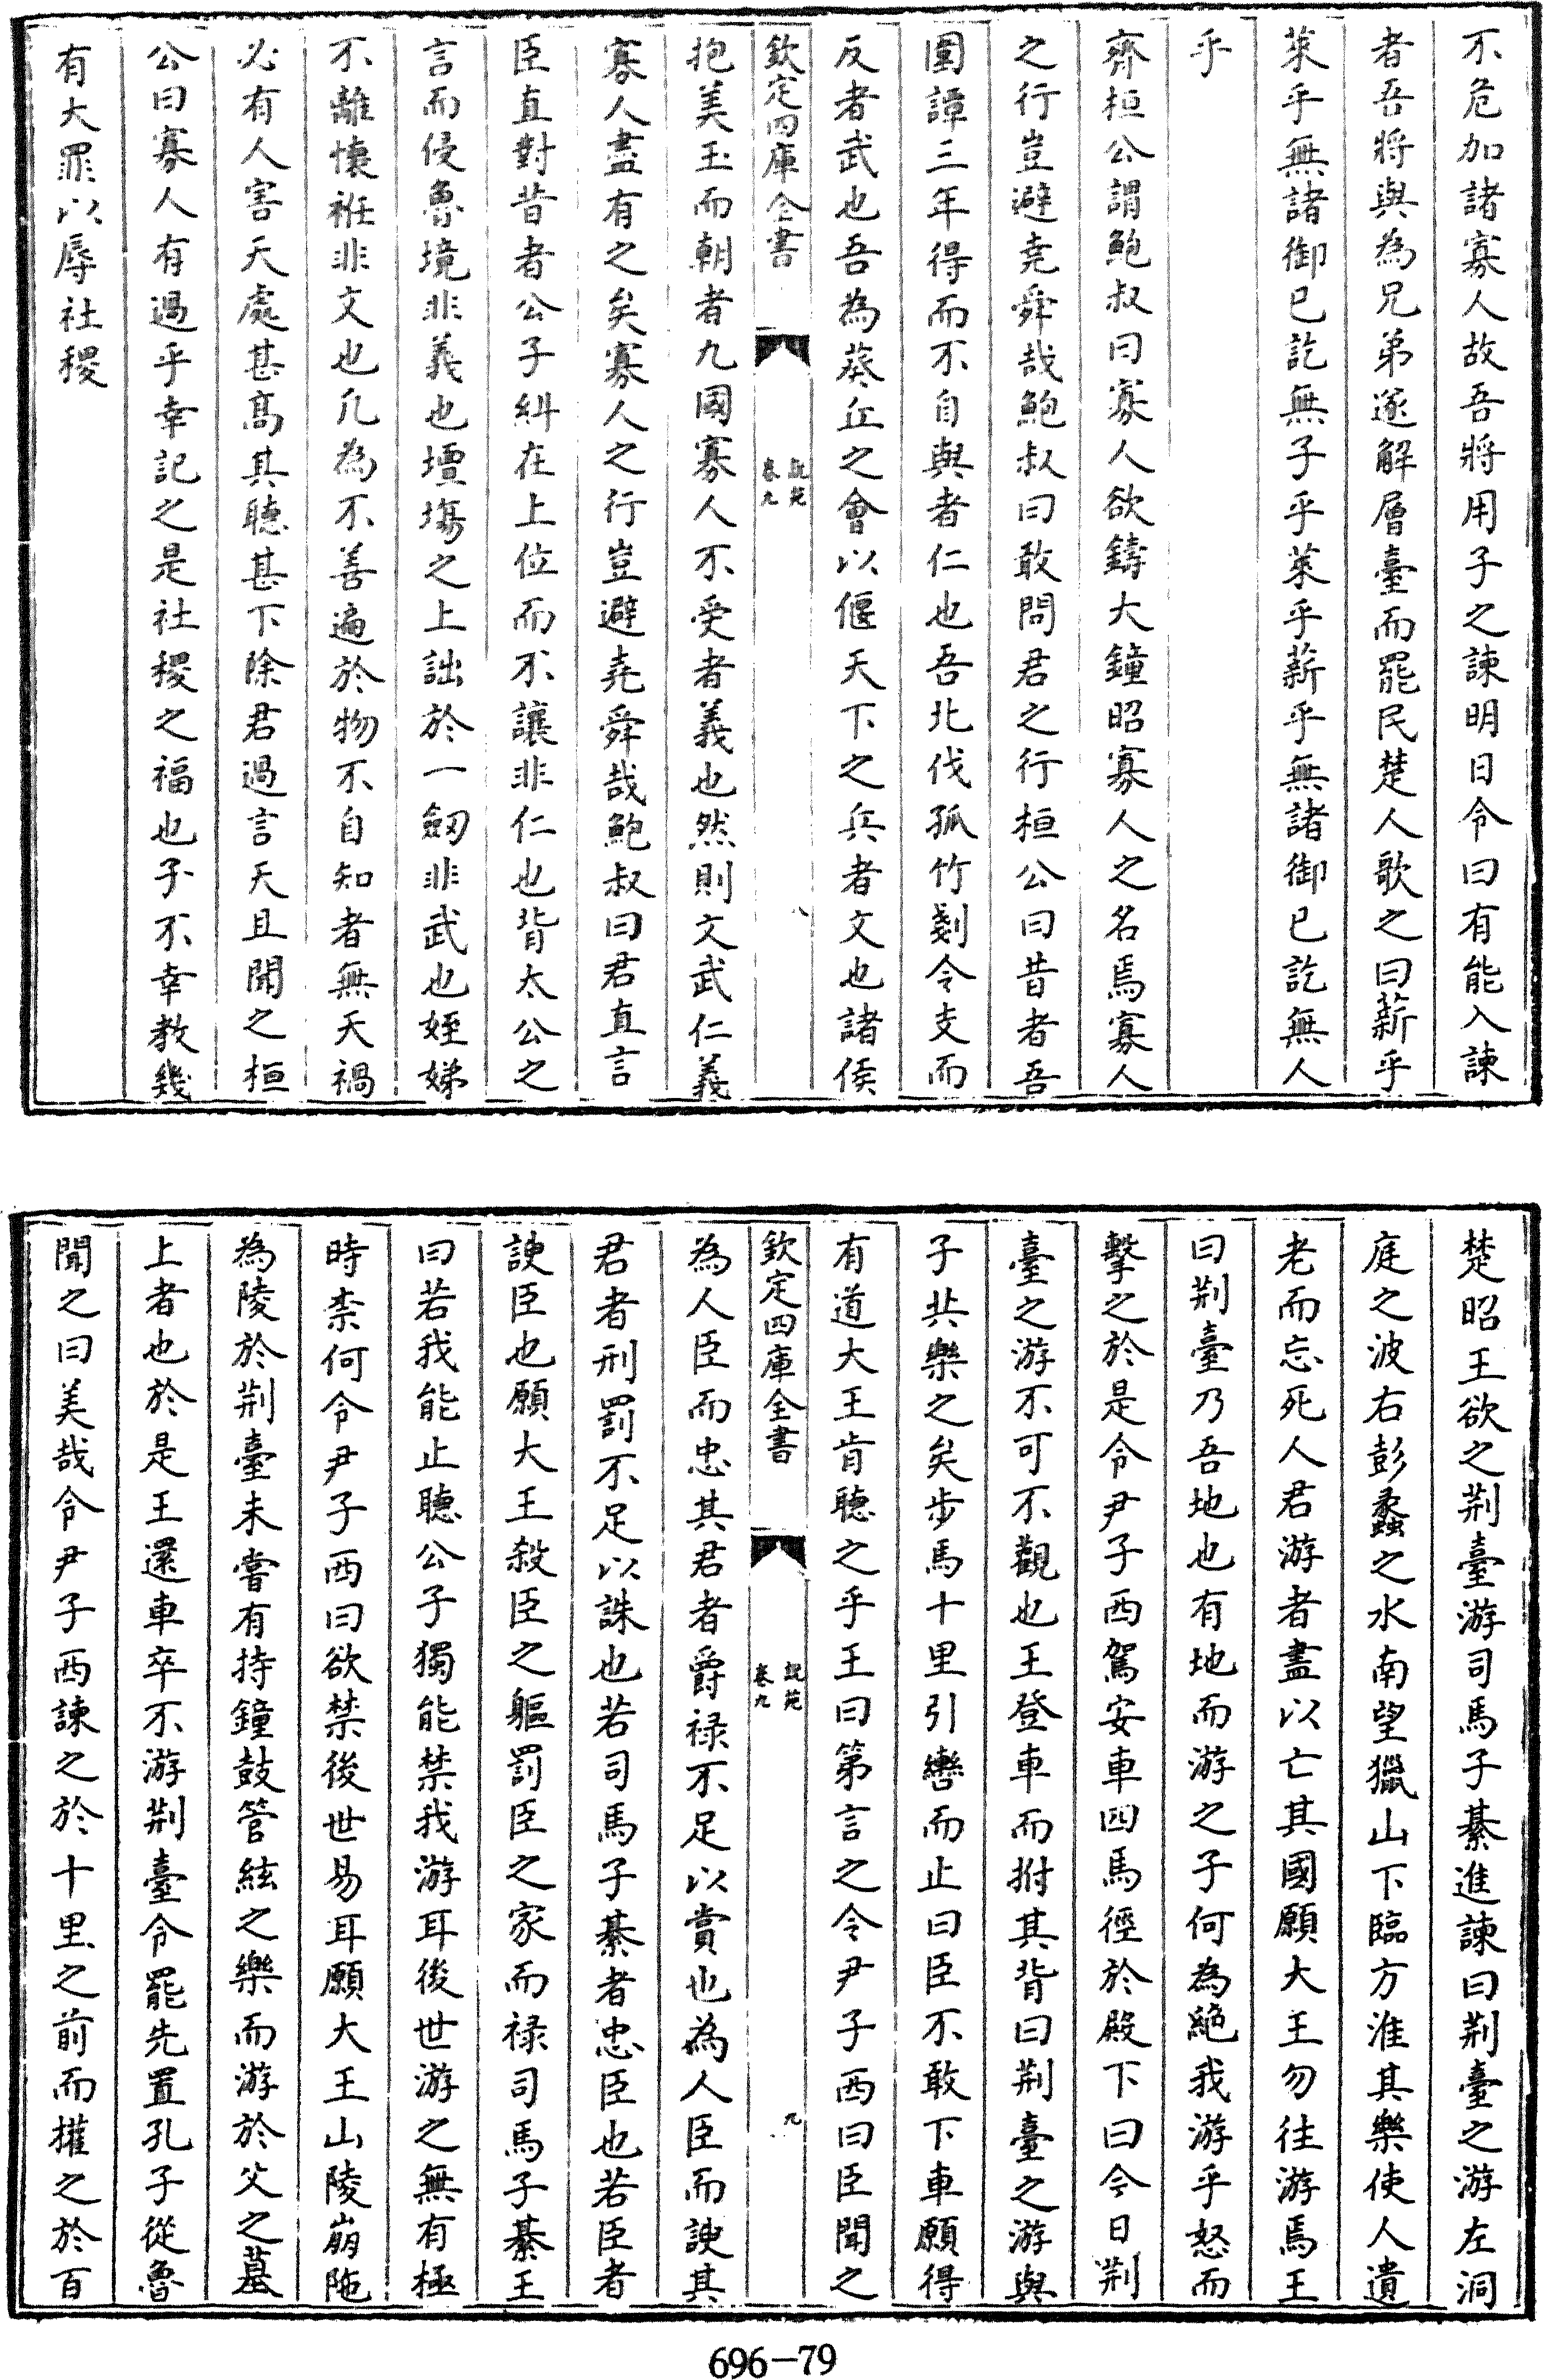 不危加諸寡人故吾將用子之諫明日令曰有能入諫
者吾將與為兄弟遂解層臺而罷民楚人歌之曰薪乎
萊乎無諸御已訖無子乎萊乎薪乎無諸御已訖無人
乎
齊桓公謂鮑叔曰寡人欲鑄大鐘昭寡人之名焉寡人
之行豈避堯舜哉鮑叔曰敢問君之行桓公曰昔者吾
圍譚三年得而不自與者仁也吾北伐孤竹剗令支而
反者武也吾為葵丘之會以偃天下之兵者文也諸侯
欽定四庫全書
說苑
卷九
八
抱美玉而朝者九國寡人不受者義也然則文武仁義
寡人盡有之矣寡人之行豈避堯舜哉鮑叔曰君直言
臣直對昔者公子糾在上位而不讓非仁也背太公之
言而侵魯境非義也壇塲之上詘於一劒非武也姪娣
不離懷袵非文也凡為不善遍於物不自知者無天禍
必有人害天處甚髙其聽甚下除君過言天且聞之桓
公曰寡人有過乎幸記之是社稷之福也子不幸教幾
有大罪以辱社稷
楚昭王欲之荆臺游司馬子綦進諫曰荆臺之游左洞
庭之波右彭蠡之水南望獵山下臨方淮其樂使人遺
老而忘死人君游者盡以亡其國願大王勿往游焉王
曰荆臺乃吾地也有地而游之子何為絶我游乎怒而
擊之於是令尹子西駕安車四馬徑於殿下曰今日荆
臺之游不可不觀也王登車而拊其背曰荆臺之游與
子共樂之矣步馬十里引轡而止曰臣不敢下車願得
有道大王肯聽之乎王曰第言之令尹子西曰臣聞之
欽定四庫全書
說苑
卷九
九
為人臣而忠其君者爵禄不足以賞也為人臣而諛其
君者刑罰不足以誅也若司馬子綦者忠臣也若臣者
諛臣也願大王殺臣之軀罰臣之家而禄司馬子綦王
曰若我能止聽公子獨能禁我游耳後世游之無有極
時柰何令尹子西曰欲禁後世易耳願大王山陵崩陁
為陵於荆臺未嘗有持鐘鼓管絃之樂而游於父之墓
上者也於是王還車卒不游荆臺令罷先置孔子從魯
聞之曰美哉令尹子西諫之於十里之前而權之於百
696-79